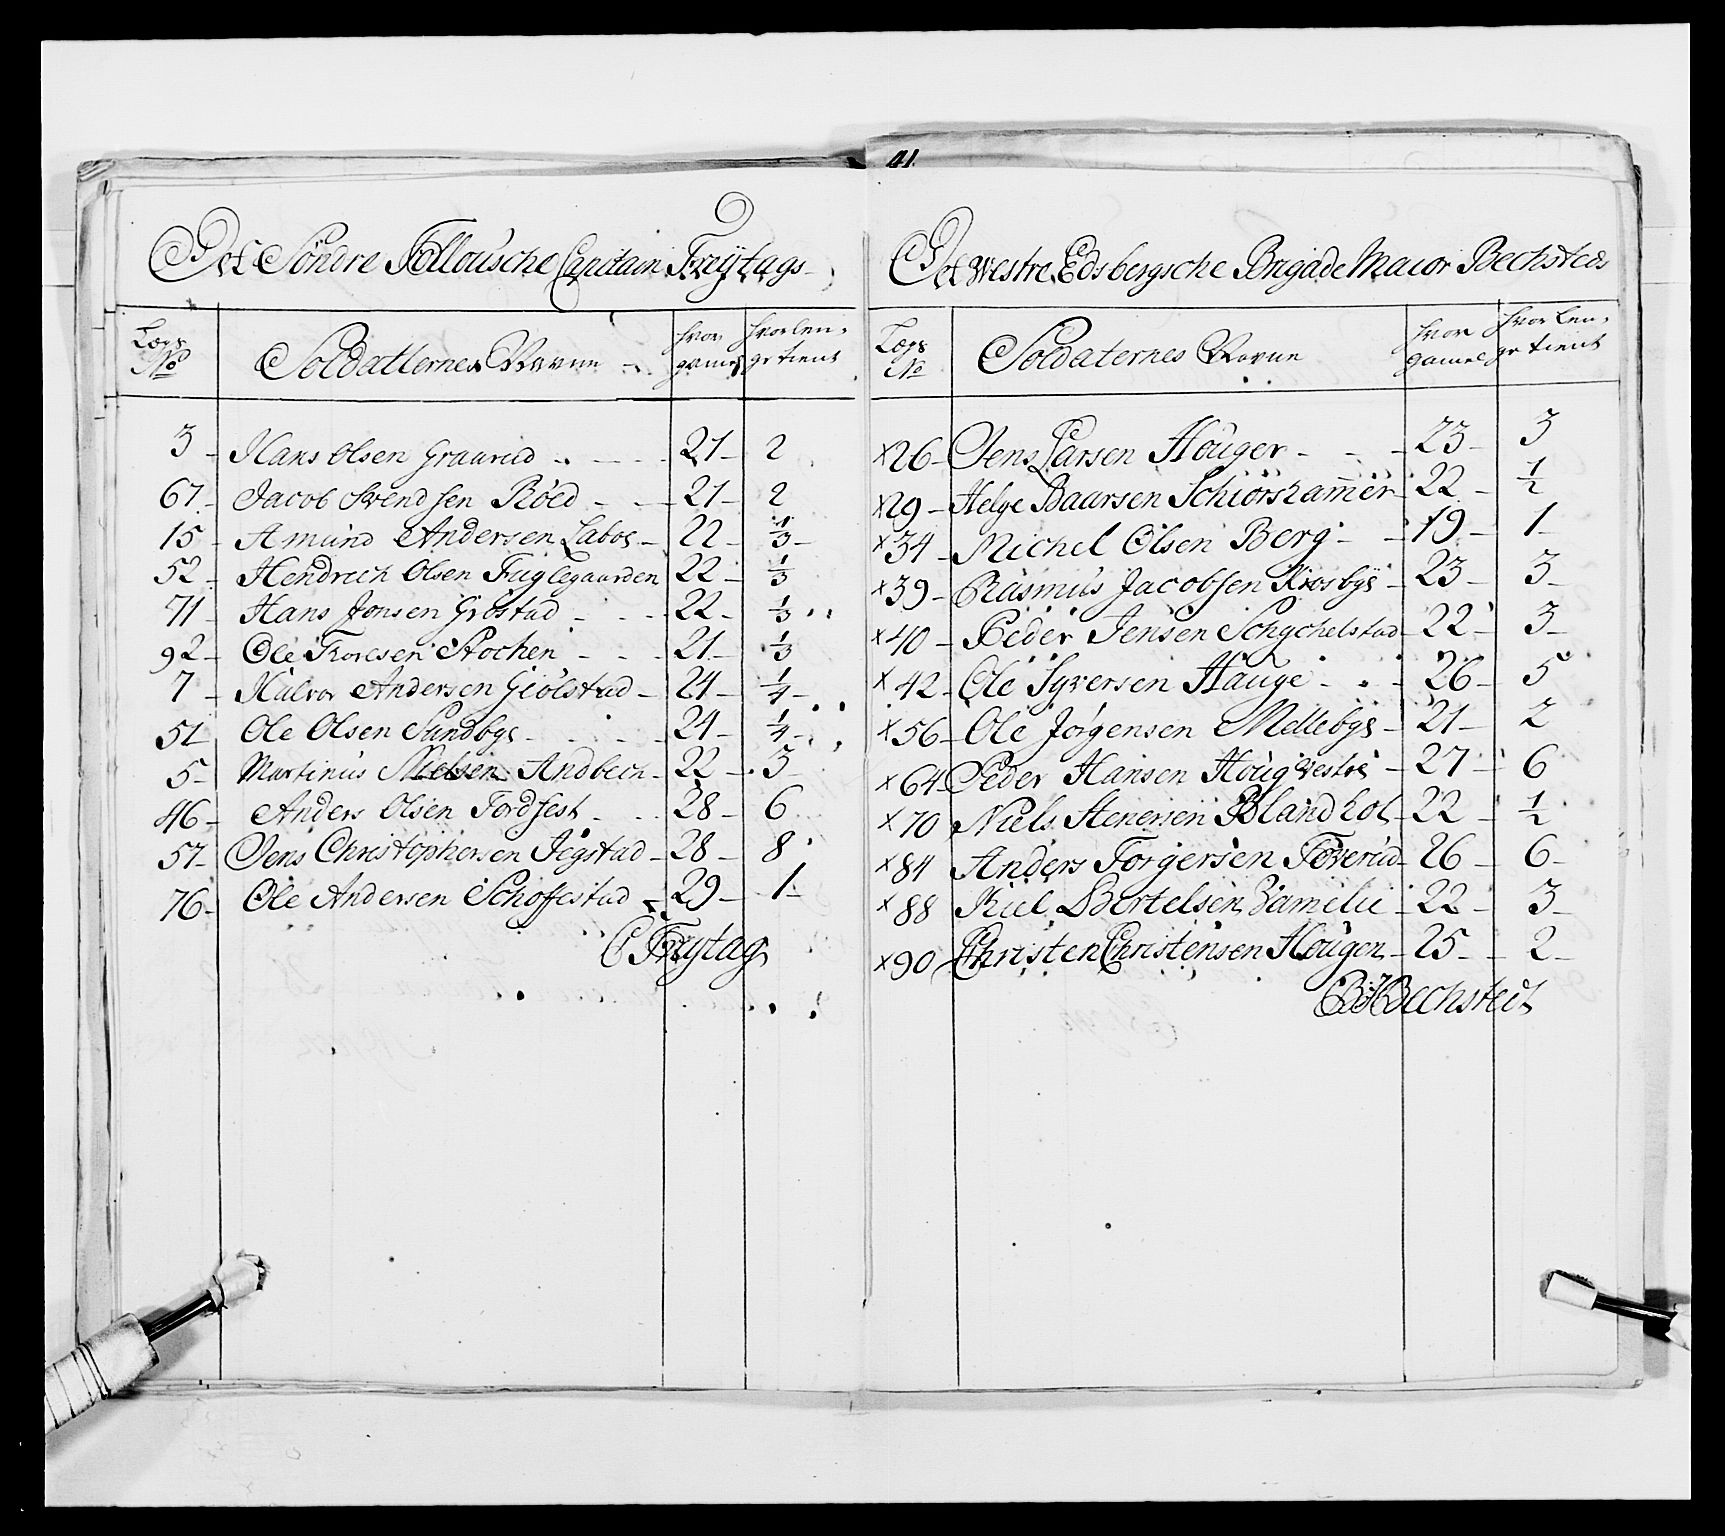 41.
Det Söndre Follousche Capitain Freÿtags
Lægs No Soldatternes Navne hvor gamel hvor len: ge tient
3 Hans Olsen Graarud 21 2
67 Jacob Svendsen Röed 21 2
15 Amund Andersen Laboe 22 1/3
52 Hendrich Olsen Fuglegaarden 22 1/3
71 Hans Jonsen Gröstad 22 1/3
92 Ole Thoresen Stochen 21 1/3
7 Halvor Andersen Giölstad 24 1/4
51 Ole Olsen Sundbye 24 1/4
5 Martinus Nielsen Andbech 22 3
46 Anders Olsen Tordfest 28 6
57 Jens Christophersen Jegstad 28 8
76 Ole Andersen Schoffestad 29 1
C Freytag
Det westre Edsbergsche Brigade Maior Bechsteds
Lægs No Soldaternes Navne hvor gamel hvor len: ge tient
x26 Jens Larsen Houger 23 3
x29 Helge Baarsen Schiörshammer 22 1/2
x34 Michel Olsen Berg 19 1
x39 Rasmus Jacobsen Krosbye 23 3
x40 Peder Jensen Schychelstad 22 3
x42 Ole Syversen Hauge 26 5
x56 Ole Jörgensen Mellebye 21 2
x64 Peder Hansen Houg westre 27 6
x70 Niels Stenersen Blandhol 22 1/2
x84 Anders Torgersen Töverud 26 6
x88 Kiel Bertelsen 22 3
x90 Christen Christensen Hougen 25 2
Bechstedt